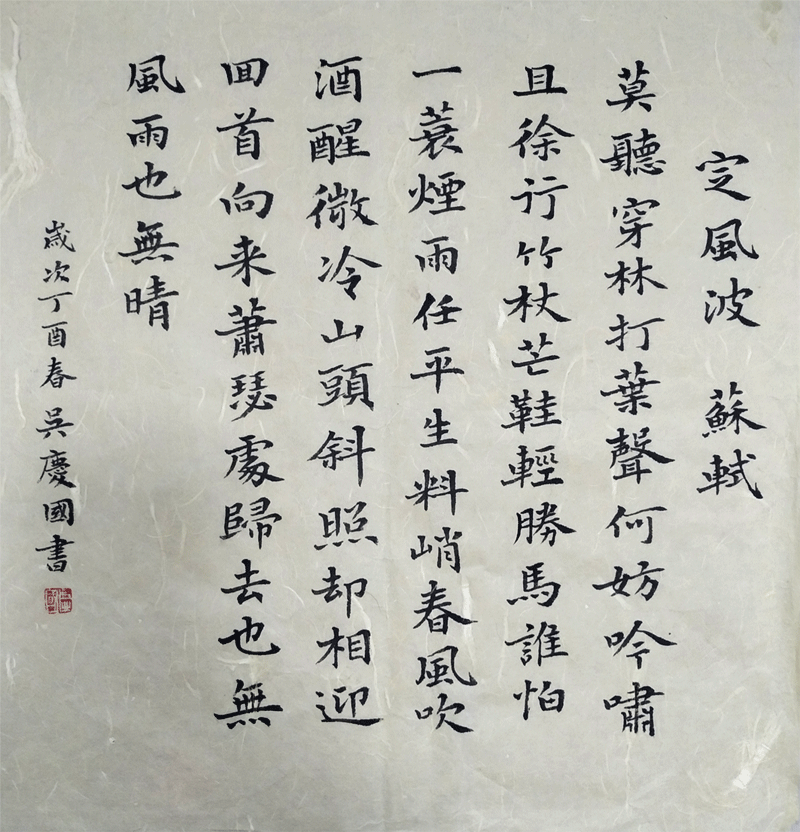 定風波 蘇軾
莫聽穿林打葉聲何妨吟嘯
且徐行竹杖芒鞋輕勝馬誰怕
一蓑煙雨任平生料峭春風吹
酒醒微冷山頭斜照却相迎
回首向来蕭瑟處歸去也無
風雨也無晴
歲次丁酉春吳慶國書